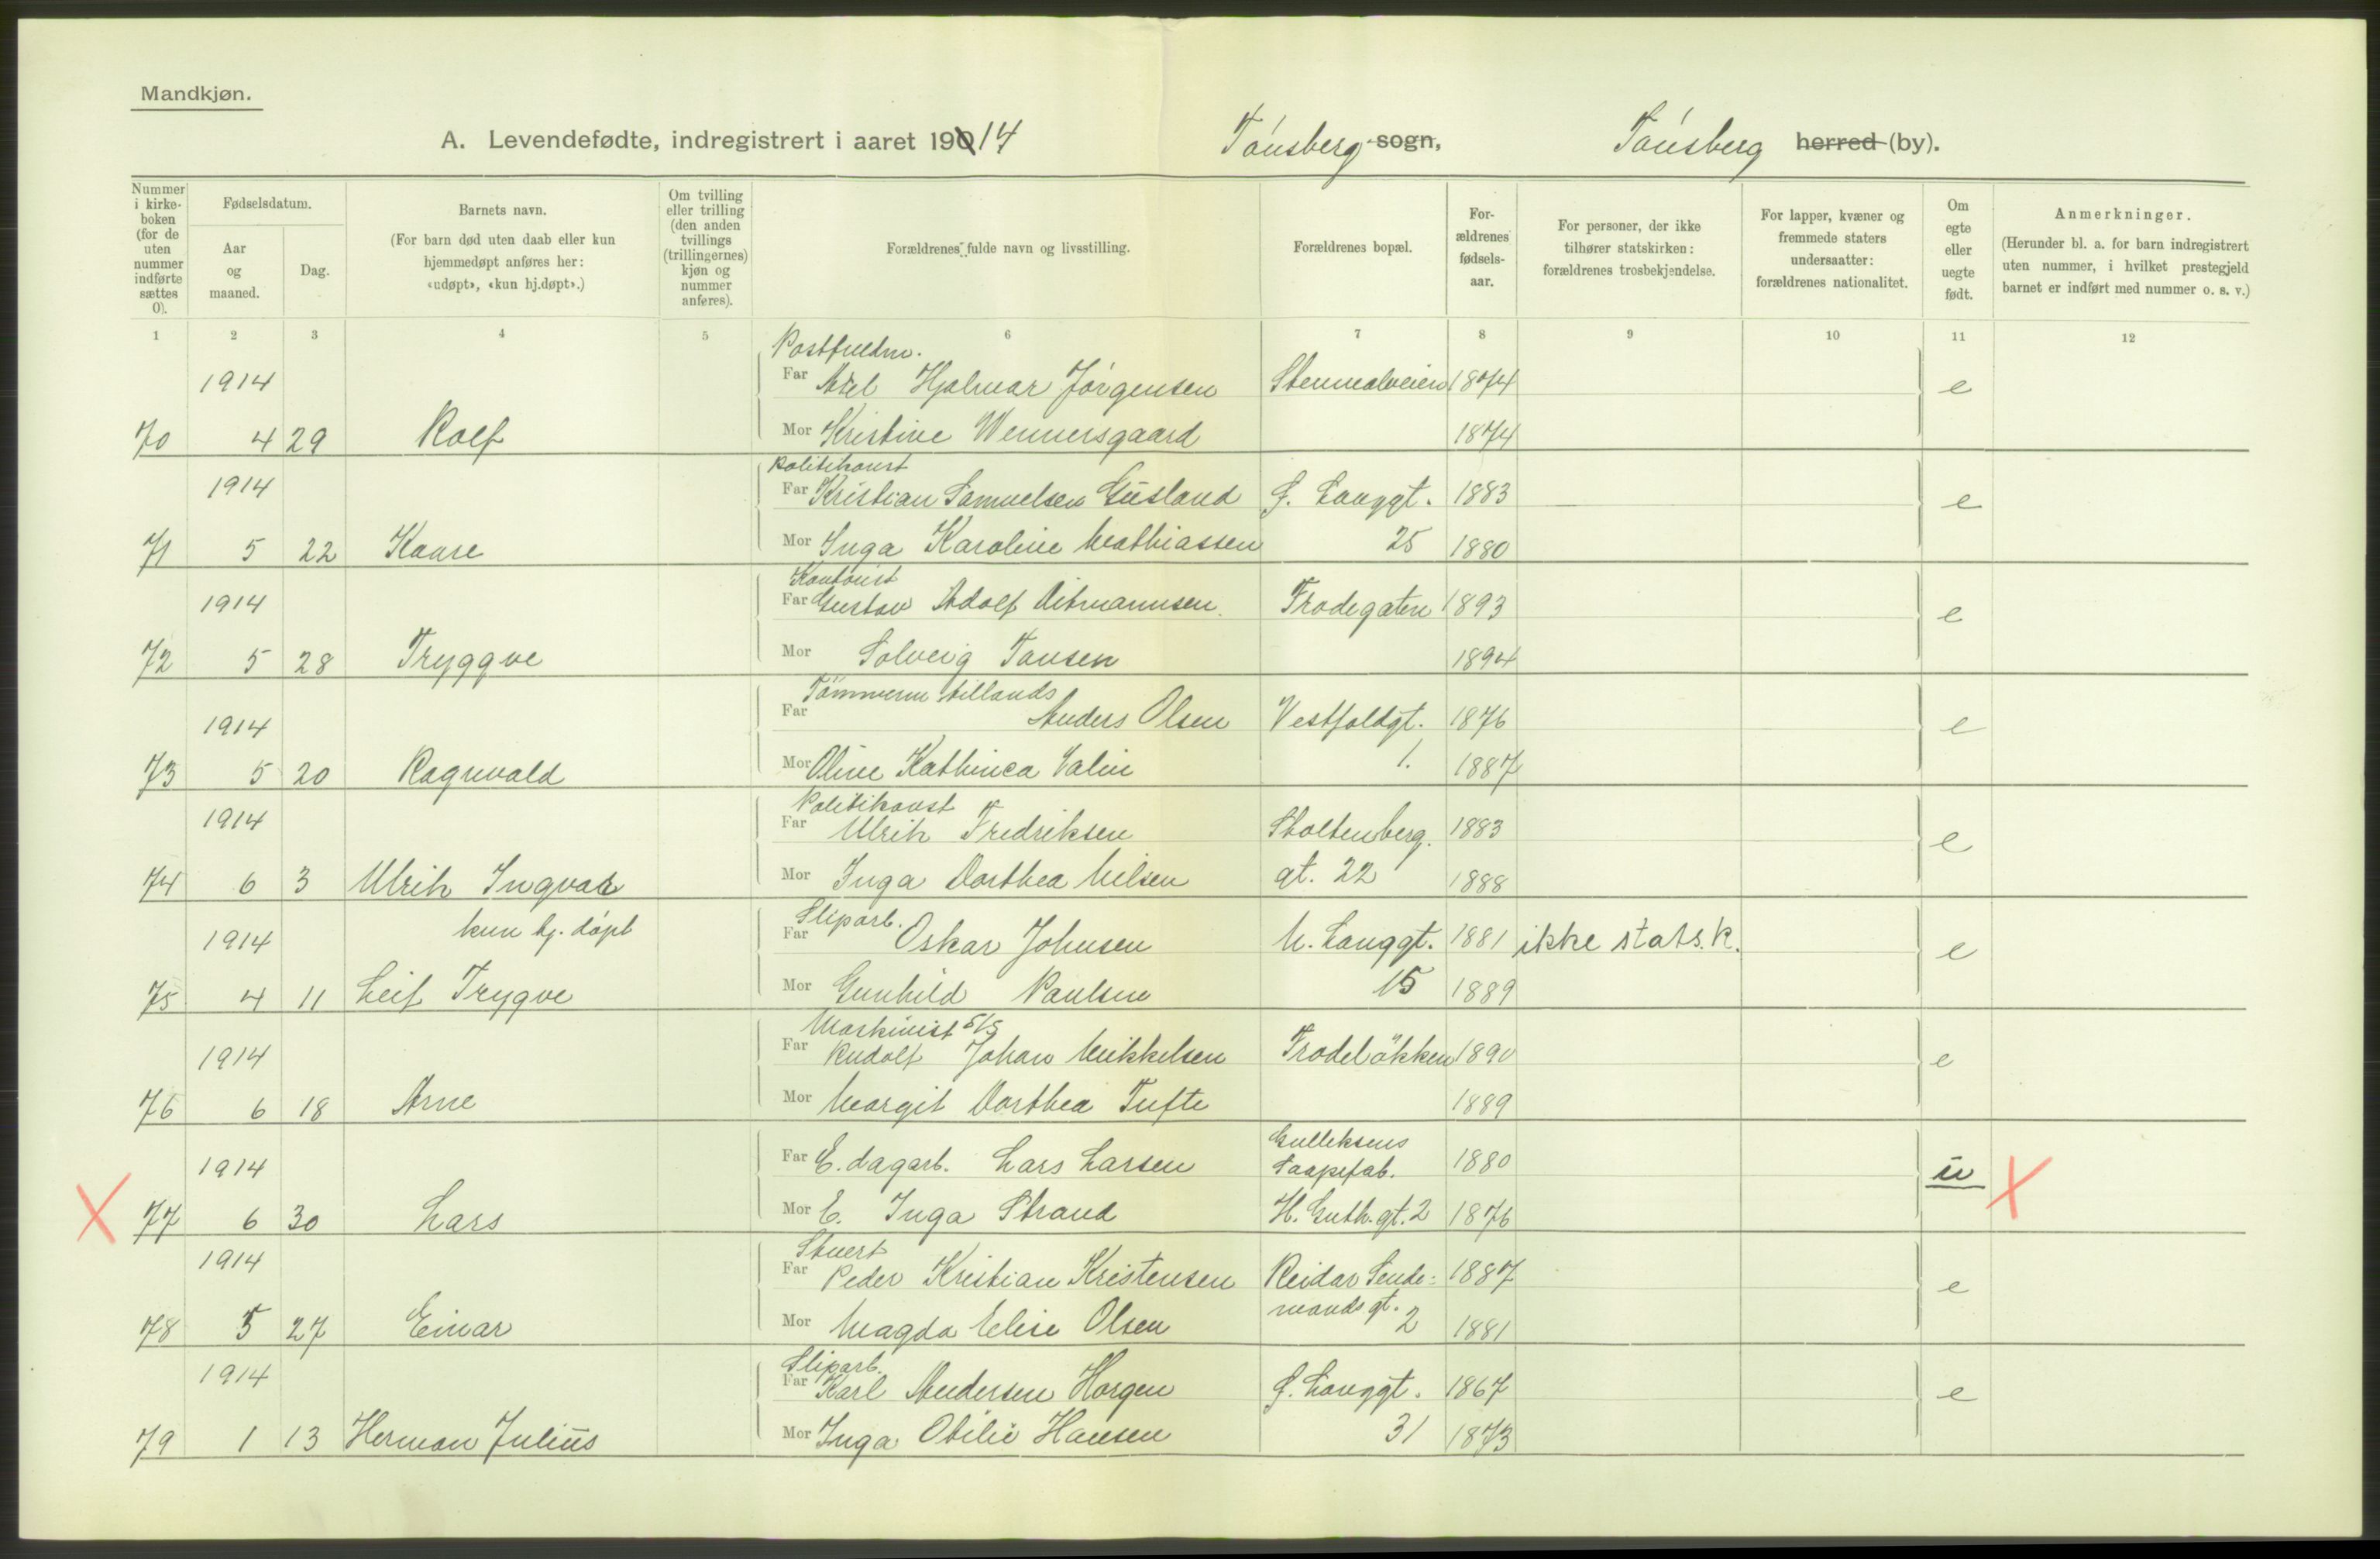 Mandkjøn.
A. Levendefødte, indregistrert i aaret 1914 Tönsberg sogn, Tönsberg herred (by).
Nummer i kirke-boken (for de uten nummer indførte sættes 0).
Fødselsdatum.
Aar og maaned.
Dag.
Barnets navn.
(For barn død uten daab eller kun hjemmedøpt anføres her: «udøpt», «kun hj.døpt».)
Om tvilling eller trilling (den anden tvillings (trillingernes) kjøn og nummer anføres).
Forældrenes fulde navn og livsstilling.
Forældrenes bopæl.
For-ældrenes fødsels-aar.
For personer, der ikke tilhører statskirken: forældrenes trosbekjendelse.
For lapper, kvæner og fremmede staters undersaatter: forældrenes nationalitet.
Om egte eller uegte født.
Anmerkninger.
(Herunder bl. a. for barn indregistrert uten nummer, i hvilket prestegjeld barnet er indført med nummer o. s. v.)
1 2 3 4 5 6 7 8 9 10 11 12
Postfuldm.
1914 Far Axel Hjalmar Jörgensen 1874 e
70 4 29 Rolf Mor Kristine Wennersgaard 1874
Politikonst
1914 Far Kristian Samuelsen Gusland f. Langgt. 1883 e
71 5 22 Kaare Mor Inga Karoline Mathiassen 25 1880
Kontorist
1914 Far Gustav Adolf Ditmannsen Frodegaten 1893 e
72 5 28 Tryggve Mor Solveig Tansen 1894
Tömmerm
1914 Far Anders Olsen Vestfoldgt. 1876 e
73 5 20 Ragnvald Mor Oline Kathinca Valin 1. 1887
Politikonst
1914 Far Ulrik Fredriksen Stoltenberg. 1883 e
74 6 3 Ulrik Ingvar Mor Inga Dorthea Nilsen gt. 22 1888
Sliparb.
1914 kun hj. döpt Far Oskar Johnsen N. Langgt. 1881 ikke stats.k. e
75 4 11 Leif Trygve Mor Gunhild Paulsen 15 1889
Maskinist S/S
1914 Far Rudolf Johan Mikkelsen Frodelökken 1890 e
76 6 18 Arne Mor Margit Dorthea Tufte 1889
Gulleksens
1914 Far E. dagarb. Lars Larsen Saapefab. 1880 u
77 6 30 Lars Mor E. Inga Strand H. Guth. gt. 2 1876
Stuert
1914 Far Peder Kristian Kristensen Reidar Sende- 1887 e
78 5 27 Einar Mor Magda Elise Olsen mands gt. 2 1881
Sliparb.
1914 Far Karl Andersen Horgen f. Langgt. 1867 e
79 1 13 Herman Julius Mor Inga Otilie Hansen 31 1873